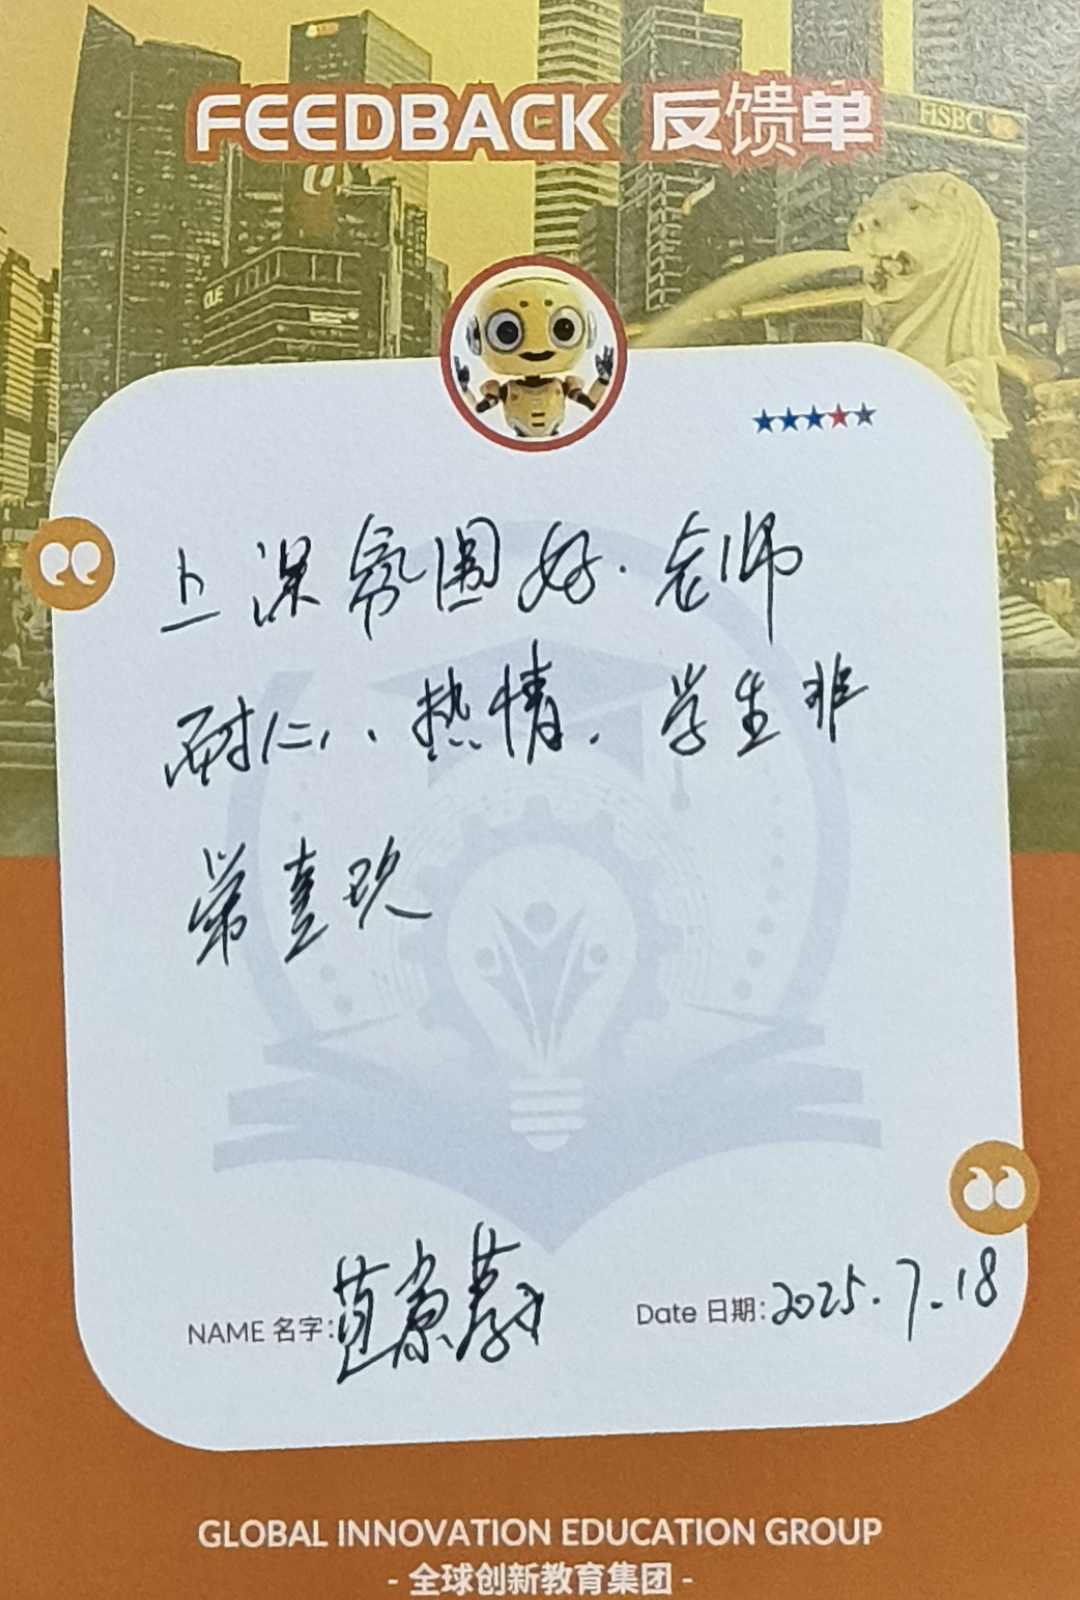 FEEDBACK 反馈单
HSBC
OUE
上课氛围好. 老师
耐心、热情. 学生非
常喜欢
NAME 名字:
Date 日期: 2025.7.18
GLOBAL INNOVATION EDUCATION GROUP
- 全球创新教育集团 -